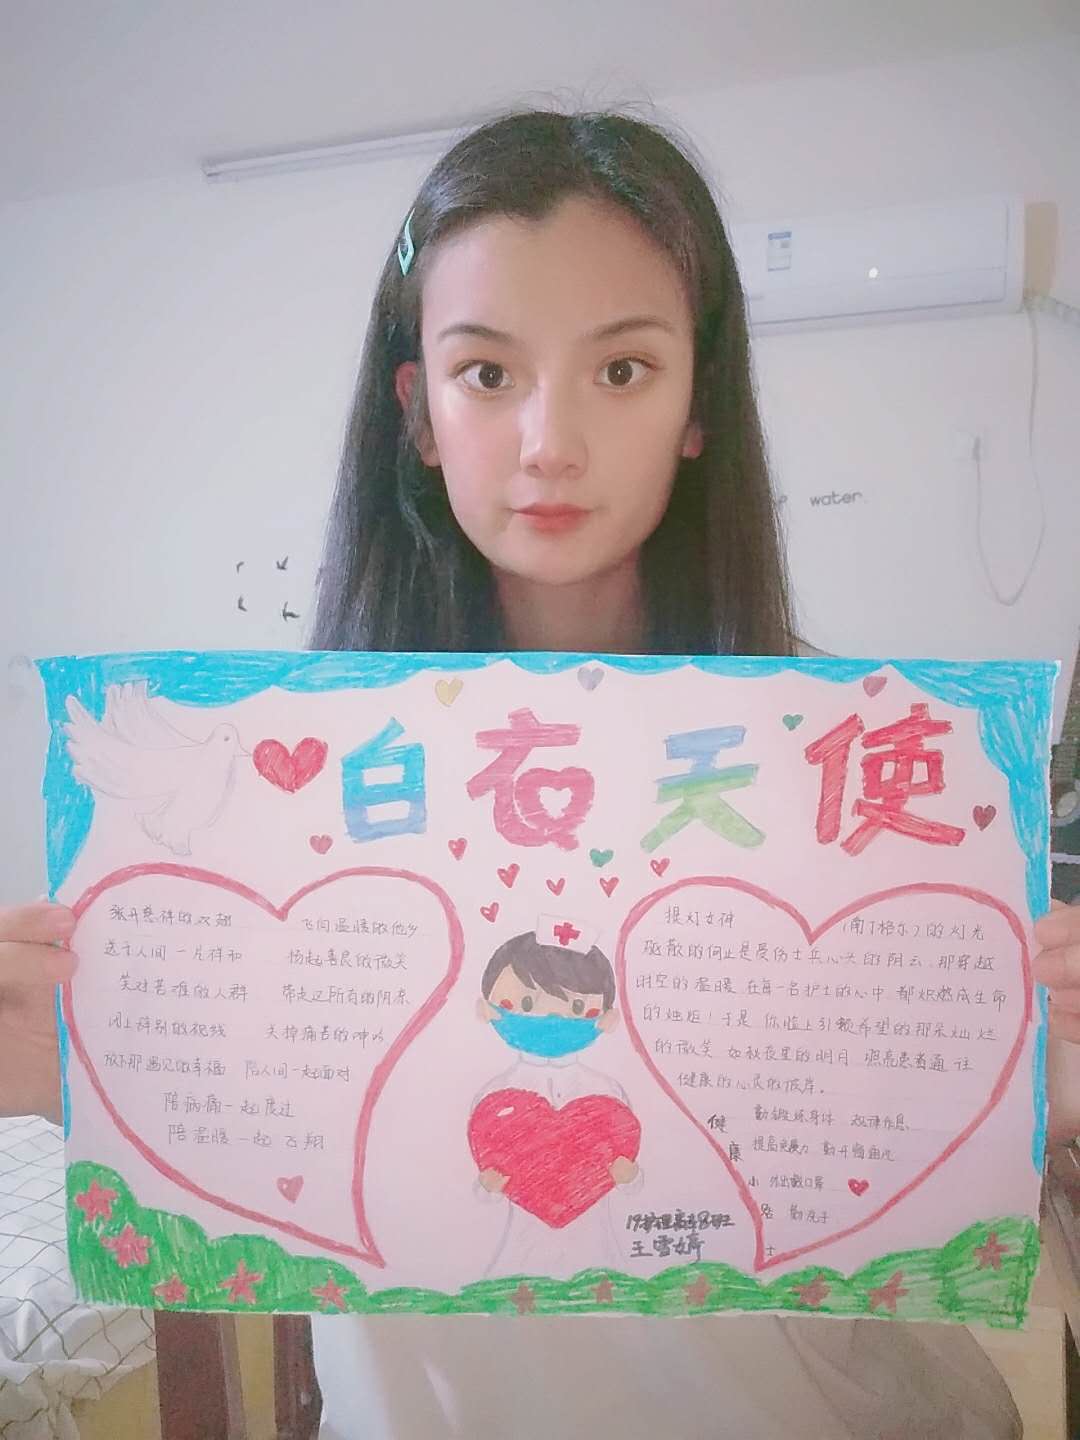 water.
白衣天使
张开慈祥的双翅 飞向温暖的他乡
送于人间一片祥和 扬起善良的微笑
笑对苦难的人群 带走过所有的阴凉
闭上辞别的视线 关掉痛苦的呻吟
放下那遇见的幸福 陪人间一起面对
陪病痛一起度过
陪温暖一起飞翔
提灯女神 南丁格尔的灯光
驱散的何止是受伤士兵心头的阴云、那穿越
时空的温暖 在每一名护士的心中 都炽燃成生命
的烛炬！于是 你脸上引领希望的那朵灿烂
的微笑 如秋夜里的明月 照亮患者通往
健康的心灵的彼岸。
健康小贴士
勤锻炼身体 规律作息
提高免疫力 勤开窗通风
外出戴口罩
勤洗手
19护理高本8班
王雪婷